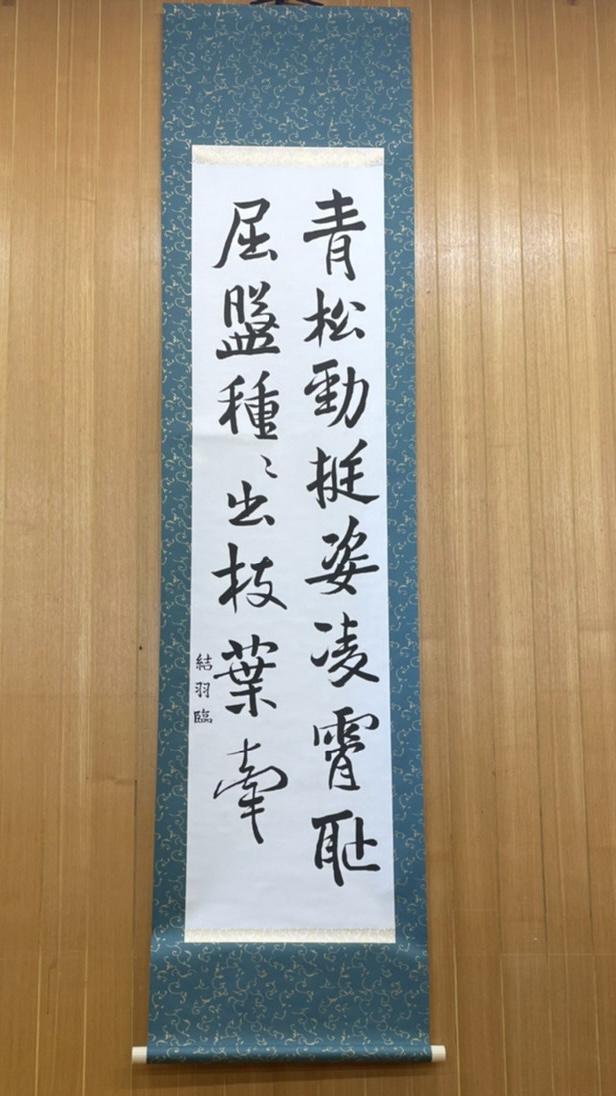 青松勁挺姿凌霄耻
屈盤種〻出枝葉牽
結羽臨